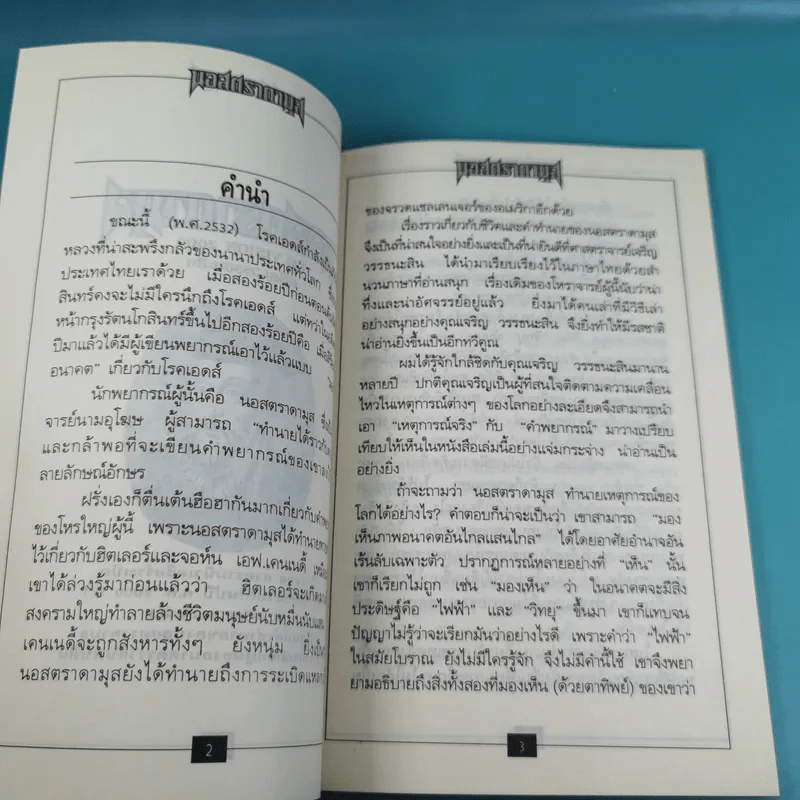 นอสตราดามุส
คำนำ
ขณะนี้ (พ.ศ.2532) โรคเอดส์กำลังเป็น
หลวงที่น่าสะพรึงกลัวของนานาประเทศทั่วโลก
ประเทศไทยเราด้วย เมื่อสองร้อยปีก่อนตอนต้น
สินทร์คงจะไม่มีใครนึกถึงโรคเอดส์ แต่ทว่าใน
หน้ากรุงรัตนโกสินทร์ขึ้นไปอีกสองร้อยปีคือ เมื่อ
ปีมาแล้วได้มีผู้เขียนพยากรณ์เอาไว้แล้วแบบ
อนาคต" เกี่ยวกับโรคเอดส์
นักพยากรณ์ผู้นั้นคือ นอสตราดามุส
จารย์นามอุโฆษ ผู้สามารถ "ทำนายได้ราวกับ
และกล้าพอที่จะเขียนคำพยากรณ์ของเขา
ลายลักษณ์อักษร
ฝรั่งเองก็ตื่นเต้นฮือฮากันมากเกี่ยวกับคำ
ของโหรใหญ่ผู้นี้ เพราะนอสตราดามุสได้ทำนาย
ไว้เกี่ยวกับฮิตเลอร์และจอห์น เอฟ.เคนเนดี้
เขาได้ล่วงรู้มาก่อนแล้วว่า ฮิตเลอร์จะเกิด
สงครามใหญ่ทำลายล้างชีวิตมนุษย์นับหมื่นนับแสน
เคนเนดี้จะถูกสังหารทั้งๆ ยังหนุ่ม ยิ่ง
นอสตราดามุสยังได้ทำนายถึงการระเบิด
2
นอสตราดามุส
ของจรวดแชลเลนเจอร์ของอเมริกาอีกด้วย
เรื่องราวเกี่ยวกับชีวิตและคำทำนายของนอสตราดามุส
จึงเป็นที่น่าสนใจอย่างยิ่งและเป็นที่น่ายินดีที่ศาสตราจารย์เจริญ
วรรธนะสิน ได้นำมาเรียบเรียงไว้ในภาษาไทยด้วยสำ
นวนภาษาที่อ่านสนุก เรื่องเดิมของโหราจารย์ผู้นี้นับว่าน่า
ทึ่งและน่าอัศจรรย์อยู่แล้ว ยิ่งมาได้คนเล่าที่มีวิธีเล่า
อย่างสนุกอย่างคุณเจริญ วรรธนะสิน จึงยิ่งทำให้มีรสชาติ
น่าอ่านยิ่งขึ้นเป็นอีกทวีคูณ
ผมได้รู้จักใกล้ชิดกับคุณเจริญ วรรธนะสินมานาน
หลายปี ปกติคุณเจริญเป็นผู้ที่สนใจติดตามความเคลื่อน
ไหวในเหตุการณ์ต่างๆ ของโลกอย่างละเอียดจึงสามารถนำ
เอา "เหตุการณ์จริง" กับ "คำพยากรณ์" มาวางเปรียบ
เทียบให้เห็นในหนังสือเล่มนี้อย่างแจ่มกระจ่าง น่าอ่านเป็น
อย่างยิ่ง
ถ้าจะถามว่า นอสตราดามุส ทำนายเหตุการณ์ของ
โลกได้อย่างไร? คำตอบก็น่าจะเป็นว่า เขาสามารถ "มอง
เห็นภาพอนาคตอันไกลแสนไกล" ได้โดยอาศัยอำนาจอัน
เร้นลับเฉพาะตัว ปรากฏการณ์หลายอย่างที่ "เห็น" นั้น
เขาก็เรียกไม่ถูก เช่น "มองเห็น" ว่า ในอนาคตจะมีสิ่ง
ประดิษฐ์คือ "ไฟฟ้า" และ "วิทยุ" ขึ้นมา เขาก็แทบจน
ปัญญาไม่รู้ว่าจะเรียกมันว่าอย่างไรดี เพราะคำว่า "ไฟฟ้า"
ในสมัยโบราณ ยังไม่มีใครรู้จัก จึงไม่มีคำนี้ใช้ เขาจึงพยา
ยามอธิบายถึงสิ่งทั้งสองที่มองเห็น (ด้วยตาทิพย์) ของเขาว่า
3